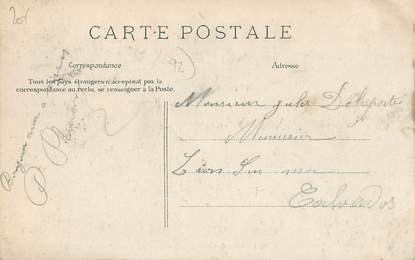 204
CARTE POSTALE
92
Correspondance
Adresse
Tous les pays étrangers n'acceptent pas la
correspondance au recto, se renseigner à la Poste.
Monsieur Jules Delaporte
Menuisier
Lion Sur mer
Calvados